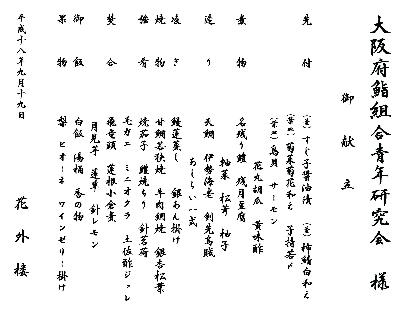 大阪府鮨組合青年研究会　様
御献立
先付　(壱) すじ子醤油漬　(壱) 柿鯖白和え
(弐) 菊菜菊花和え　子持若め
(弐) 鳥貝　サーモン
花丸胡瓜　黄味酢
煮物　名残り鱧　残月豆腐
柚葉　松茸　柚子
造り　天鯛　伊勢海老　剣先烏賊
あしらい一式
凌ぎ　鰻蓮蒸し　銀あん掛け
焼物　甘鯛若狭焼　牛肉鍬焼　銀杏松葉
強肴　焼茄子　鱧焼もり　針茗荷
毛ガニ　ミニオクラ　土佐酢ジュレ
焚合　飛竜頭　蓮根小倉煮
月見芋　蓮草　針レモン
御飯　白飯　湯桶　香の物
果物　梨　ピオーネ　ワインゼリー掛け
平成十八年九月十九日
花外楼